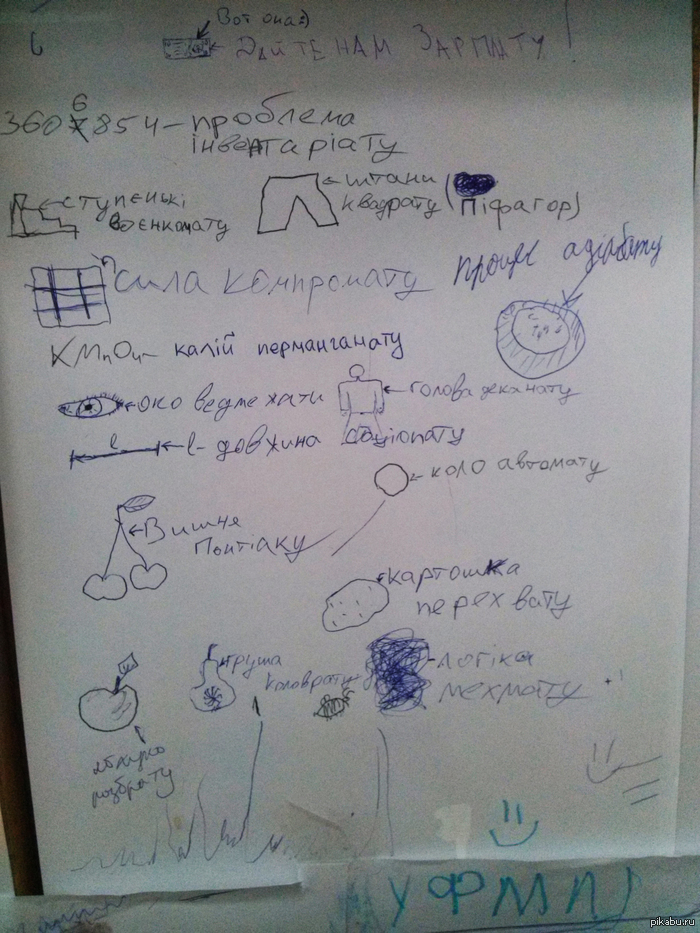 Вот она:)
Дайте нам зарплату!
6
360785ч - проблема
інвентаріату
ступенькі
воєнкомату
штани
квадрату (Піфагор)
сила компромату
процес
KMnO4 - калій перманганату
око ведмежати
голова деканату
l
l - довжина соціопату
коло автомату
Вишня
Понтіаку
картошка
перехвату
груша
коловрату
логіка
мехмату
яблуко
розбрату
УФМЛ
pikabu.ru